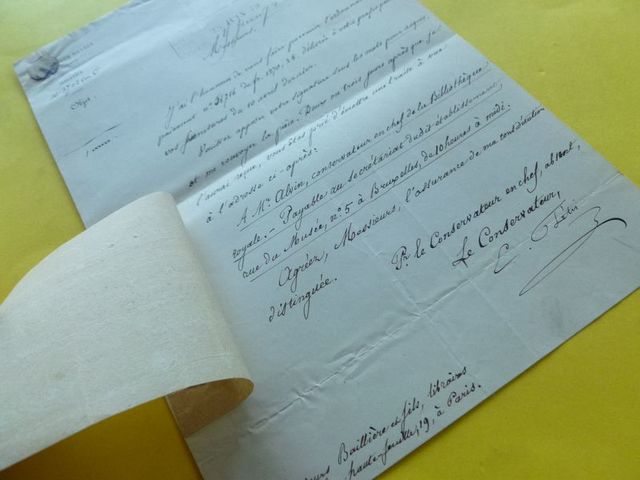 J'ai l'honneur de vous faire parvenir l'ordonnance de
paiement n° de fr. délivrée à votre profit pour
vos fournitures du 10 avril dernier.
Veuillez apposer votre signature sous les mots pour acquit,
et me renvoyer la pièce. Deux ou trois jours après que je
l'aurai reçue, vous êtes prié d'émettre une traite à vue
à l'adresse ci-après:
A Mr. Alvin, conservateur en chef de la Bibliothèque
royale. – Payable au secrétariat dudit établissement,
rue du Musée, n° 5 à Bruxelles, de 10 heures à midi.
Agréez, Messieurs, l'assurance de ma considération
distinguée.
Pr. le Conservateur en chef, absent,
Le Conservateur,
Baillière et fils, libraires
haute-feuille, 19, à Paris.